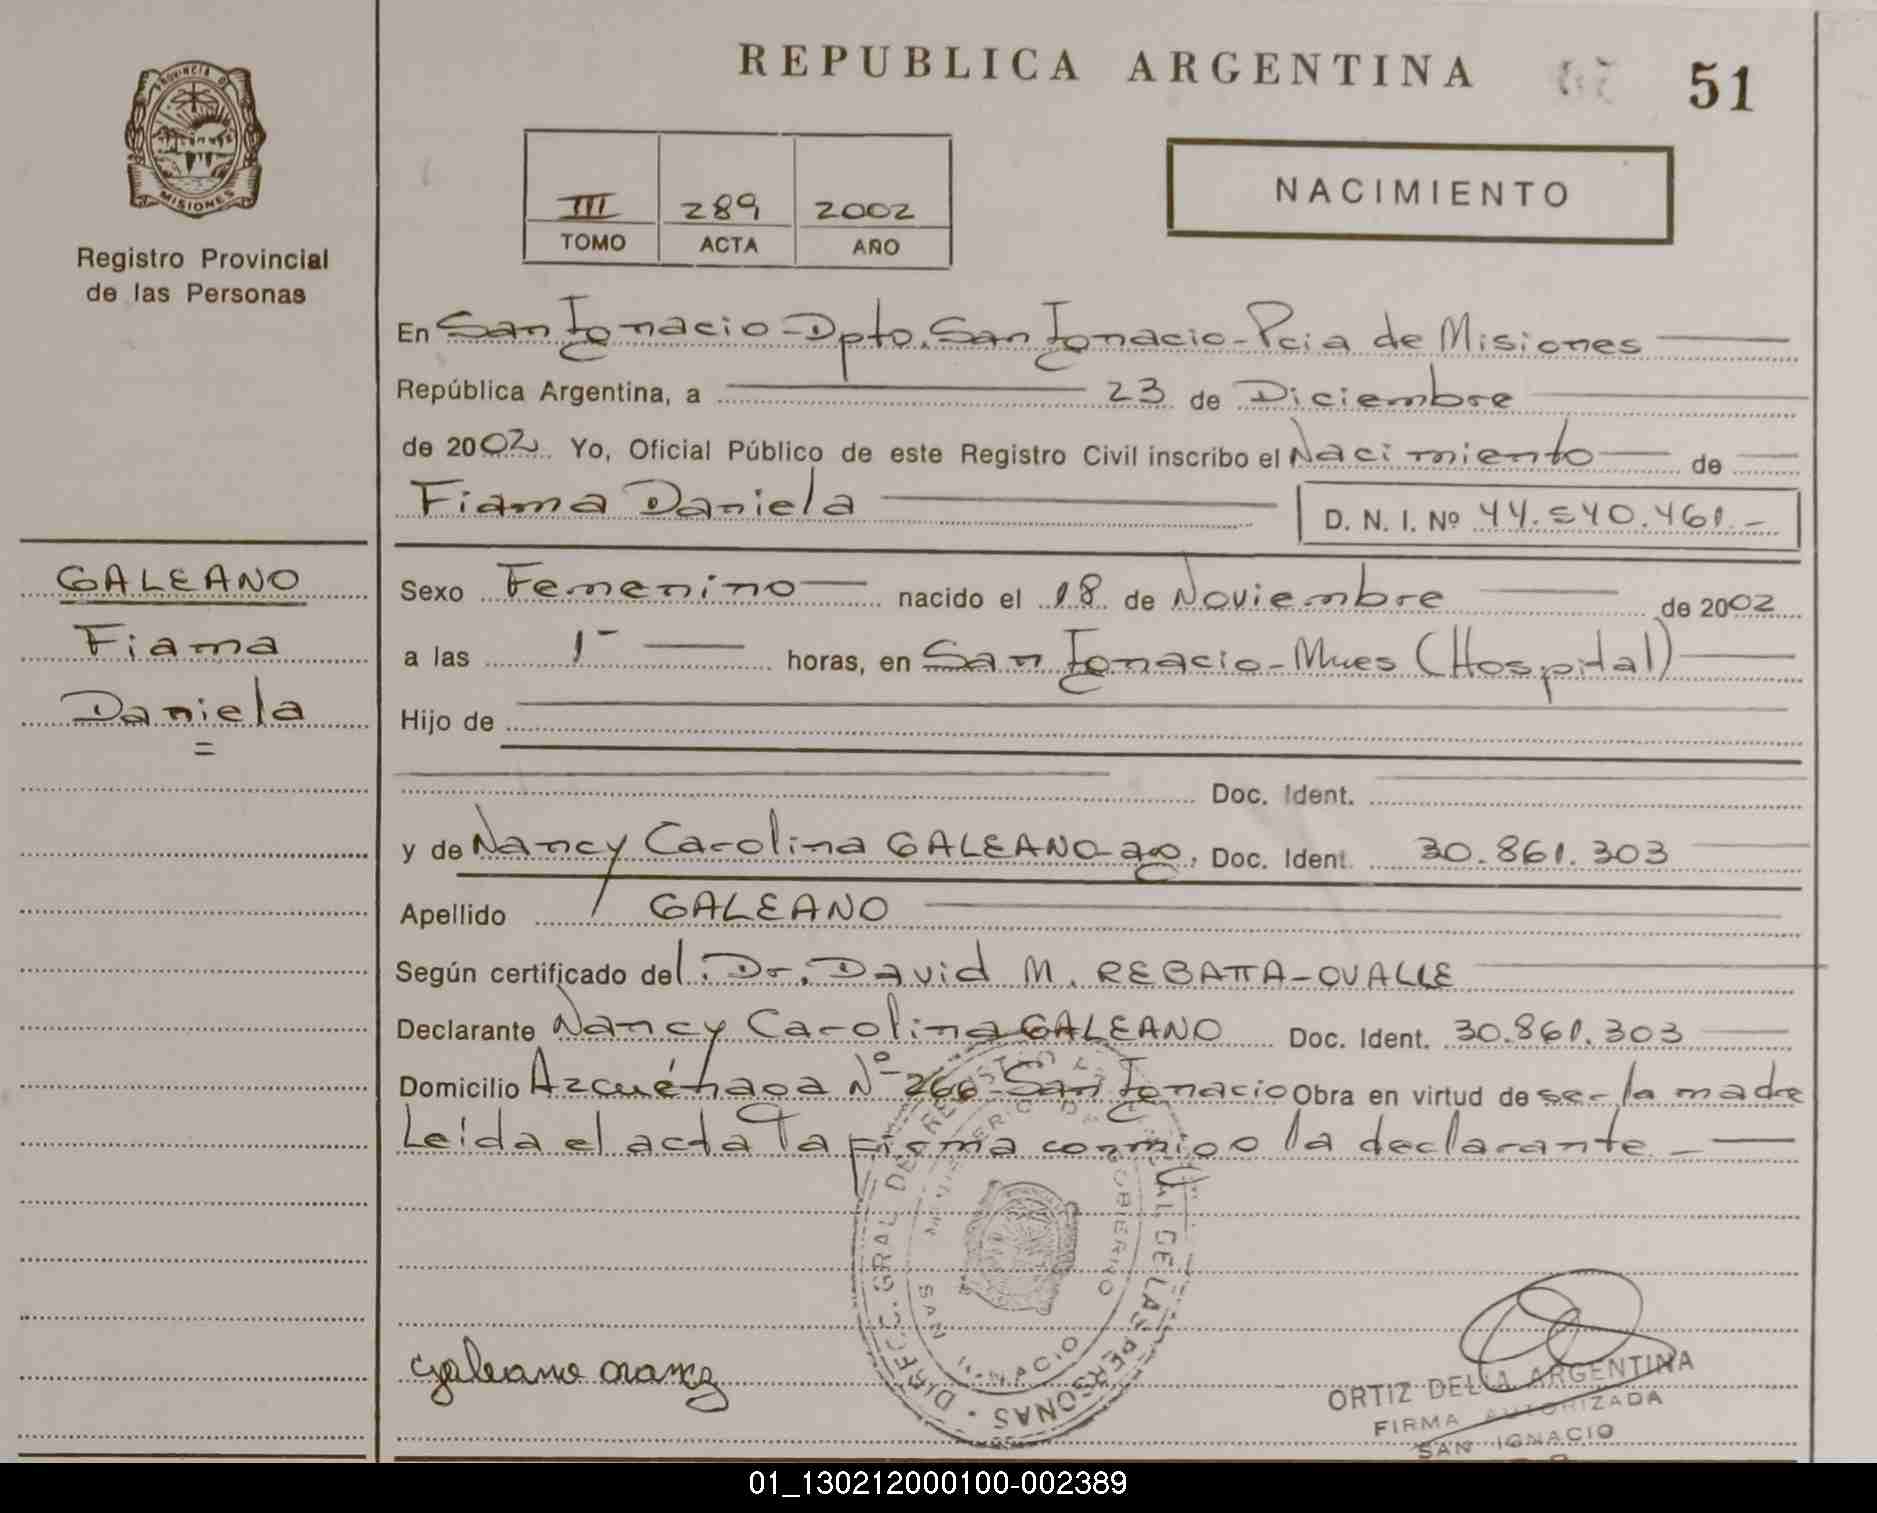 REPUBLICA ARGENTINA
51
PROVINCIA DE
MISIONES
Registro Provincial
de las Personas
III 289 2002
TOMO ACTA AÑO
NACIMIENTO
En San Ignacio - Dpto. San Ignacio - Pcia de Misiones
República Argentina, a 23 de Diciembre
de 2002 Yo, Oficial Público de este Registro Civil inscribo el Nacimiento de
Fiama Daniela D. N. I. Nº 44.540.461.-
GALEANO
Fiama
Daniela
=
Sexo Femenino nacido el 18 de Noviembre de 2002
a las 1- horas, en San Ignacio - Mnes (Hospital)
Hijo de
Doc. Ident.
y de Nancy Carolina GALEANO - arg, Doc. Ident. 30.861.303
Apellido GALEANO
Según certificado del. Dr. David M. REBATTA-OVALLE
Declarante Nancy Carolina GALEANO Doc. Ident. 30.861.303
Domicilio Azcuénaga Nº 266 San Ignacio Obra en virtud de ser la madre
Leída el acta la firma conmigo la declarante. -
DIRECC. GRAL DE REGISTRO DE LAS PERSONAS
GOBIERNO
SAN IGNACIO
Galeano nancy
ORTIZ DELIA ARGENTINA
FIRMA AUTORIZADA
SAN IGNACIO
01_130212000100-002389